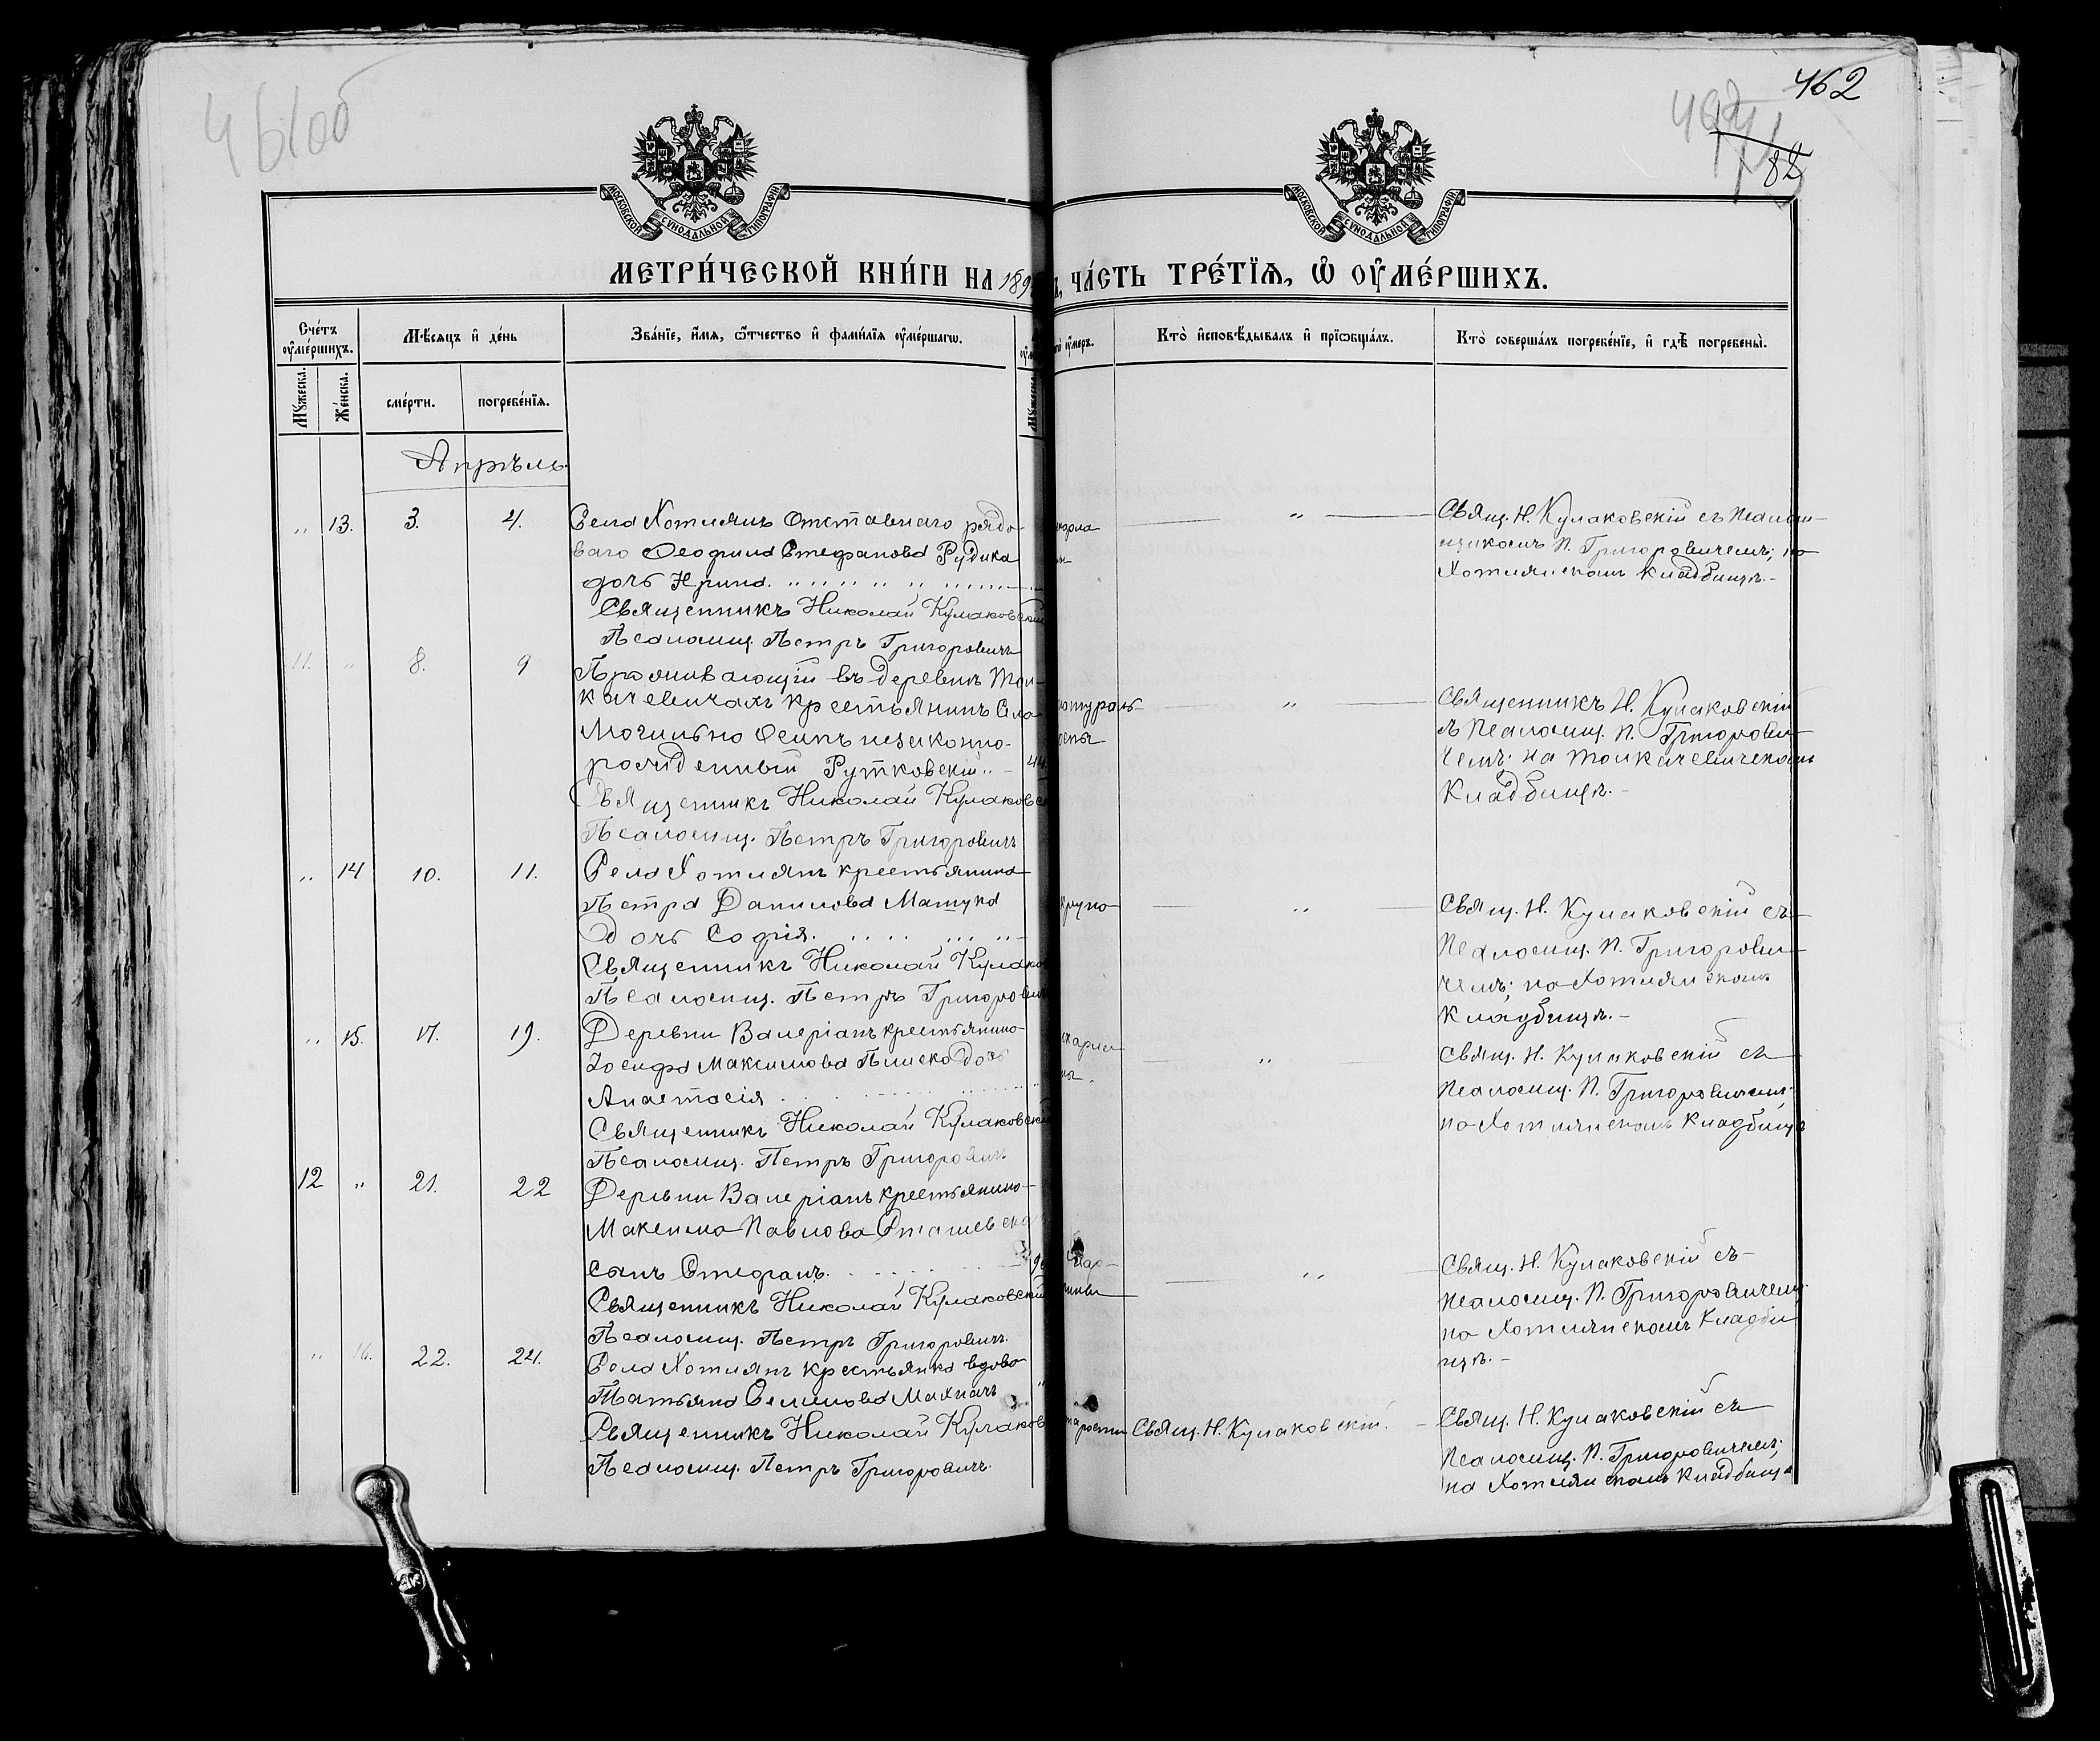 461об
462
82
МОСКОВСКОЙ СѴНОДАЛЬНОЙ ТИПОГРАФІИ
МОСКОВСКОЙ СѴНОДАЛЬНОЙ ТИПОГРАФІИ
МЕТРИ́ЧЕСКОЙ КНИ́ГИ НА 189
ЧА́СТЬ ТРЕ́ТЇѦ, Ѽ ОУ҆МЕ́РШИХЪ.
Сче́тъ оу҆ме́ршихъ.
Мѣ́сѧцъ и҆ де́нь
Зва́нїе, и҆́мѧ, ѻ҆́тчество и҆ фами́лїѧ оу҆ме́ршагѡ.
Кто̀ и҆сповѣ́дывалъ и҆ прїѡбща́лъ.
Кто̀ соверша́лъ погребе́нїе, и҆ гдѣ̀ погребены̀.
Мꙋ́жеска.
Же́нска.
сме́рти.
погребе́нїѧ.
Апрѣль
„ 13. 3. 4. Села Хотлянъ Отставнаго рядо-
ваго Ѳеофила Стефанова Рудика
дочь Ирина.
Священникъ Николай Кулаковскій
Псаломщ. Петръ Григоровичъ
„ Свящ. Н. Кулаковскій съ Псалом-
щикомъ П. Григоровичемъ; на
Хотлянскомъ кладбищѣ.-
11. „ 8. 9 Проживающій въ деревнѣ Тол-
качевичахъ крестьянинъ Села
Могильно Осипъ незаконно-
рожденный Рутковскій 44
Священникъ Николай Кулаковск
Псаломщ. Петръ Григоровичъ
„ Священникъ Н. Кулаковскій
съ Псаломщ. П. Григорови-
чемъ; на Толкачевичскомъ
Кладбищѣ.-
„ 14 10. 11. Села Хотлянъ крестьянина
Петра Данилова Мацука
Дочь Софія.
Священникъ Николай Кулако
Псаломщ. Петръ Григорович
крупо „ Свящ. Н. Кулаковскій съ
Псаломщ. П. Григорови-
чемъ; на Хотлянскомъ
кладбищѣ.-
„ 15. 17. 19. Деревни Валеріанъ крестьянина
Іосифа Максимова Плиско Дочь
Анастасія
Священникъ Николай Кулаковскі
Псаломщ. Петръ Григорович
„ Свящ. Н. Кулаковскій съ
Псаломщ. П. Григоровичемъ;
на Хотлянскомъ Кладбищѣ
12 „ 21. 22 Деревни Валеріанъ крестьянина
Максима Павлова Сташевска
сынъ Стефанъ.
Священникъ Николай Кулаковскій
Псаломщ. Петръ Григоровичъ.
„ Свящ. Н. Кулаковскій съ
Псаломщ. П. Григоровичемъ;
на Хотлянскомъ Кладби-
щѣ.-
„ 16. 22. 24. Села Хотлянъ крестьянка вдова
Татьяна Семенова Махнач
Священникъ Николай Кулаков
Псаломщ. Петръ Григоровичъ.
Свящ. Н. Кулаковскій. Свящ. Н. Кулаковскій съ
Псаломщ. П. Григоровичемъ;
на Хотлянскомъ кладбищѣ